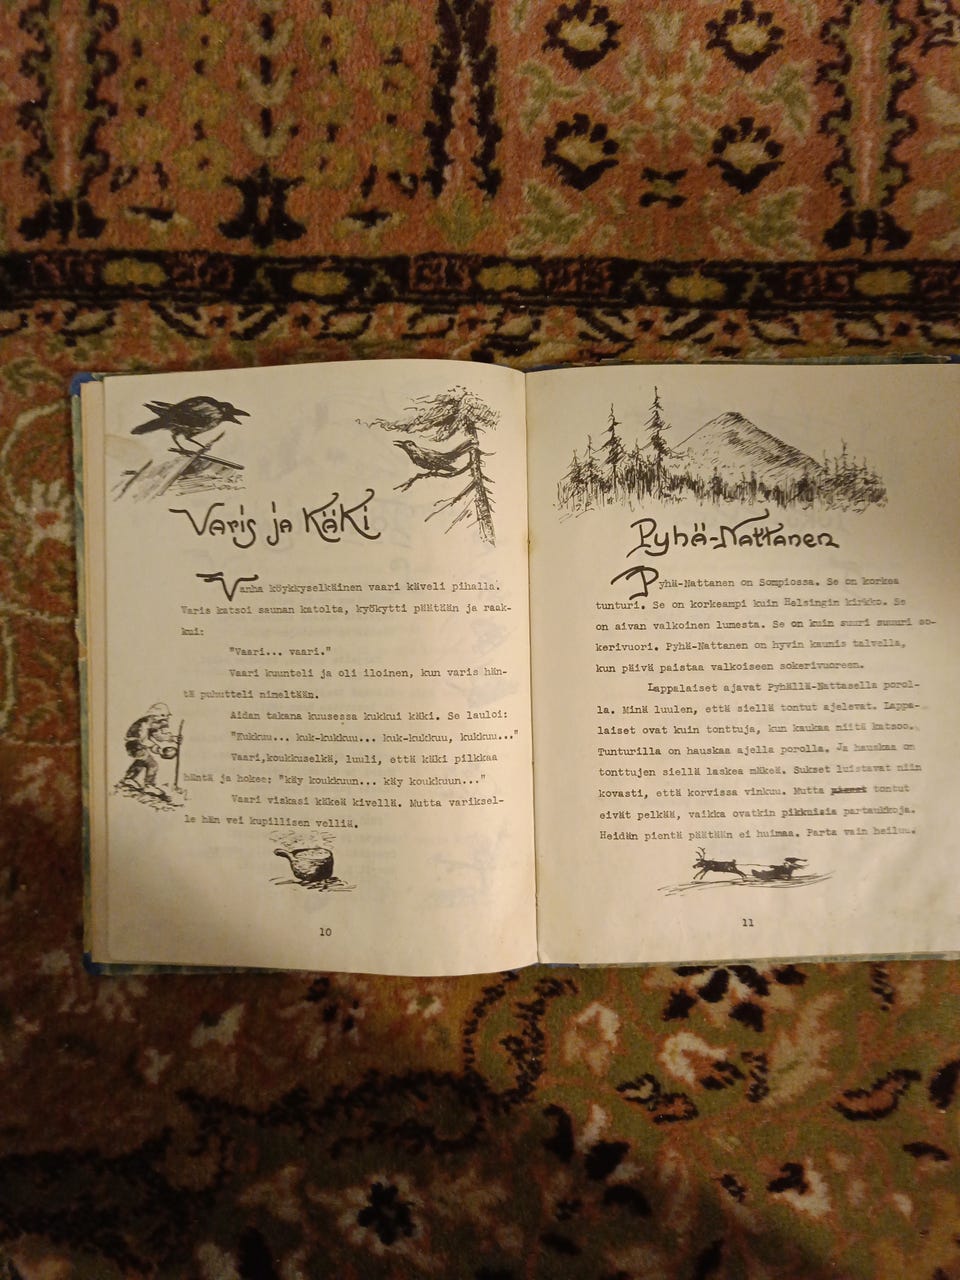 Varis ja Käki
Vanha köykkyselkäinen vaari käveli pihalla.
Varis katsoi saunan katolta, kyökytti päätään ja raak-
kui:
"Vaari... vaari."
Vaari kuunteli ja oli iloinen, kun varis hän-
tä puhutteli nimeltään.
Aidan takana kuusessa kukkui käki. Se lauloi:
"Kukkuu... kuk-kukkuu... kuk-kukkuu, kukkuu..."
Vaari,koukkuselkä, luuli, että käki pilkkaa
häntä ja hokee: "käy koukkuun... käy koukkuun..."
Vaari viskasi käkeä kivellä. Mutta variksel-
le hän vei kupillisen velliä.
10
Pyhä-Nattanen
Pyhä-Nattanen on Sompiossa. Se on korkea
tunturi. Se on korkeampi kuin Helsingin kirkko. Se
on aivan valkoinen lumesta. Se on kuin suuri suuri so-
kerivuori. Pyhä-Nattanen on hyvin kaunis talvella,
kun päivä paistaa valkoiseen sokerivuoreen.
Lappalaiset ajavat Pyhällä-Nattasella porol-
la. Minä luulen, että siellä tontut ajelevat. Lappa-
laiset ovat kuin tonttuja, kun kaukaa niitä katsoo.
Tunturilla on hauskaa ajella porolla. Ja hauskaa on
tonttujen siellä laskea mäkeä. Sukset luistavat niin
kovasti, että korvissa vinkuu. Mutta tontut
eivät pelkää, vaikka ovatkin pikkuisia partaukkoja.
Heidän pientä päätään ei huimaa. Parta vain heiluu.
11